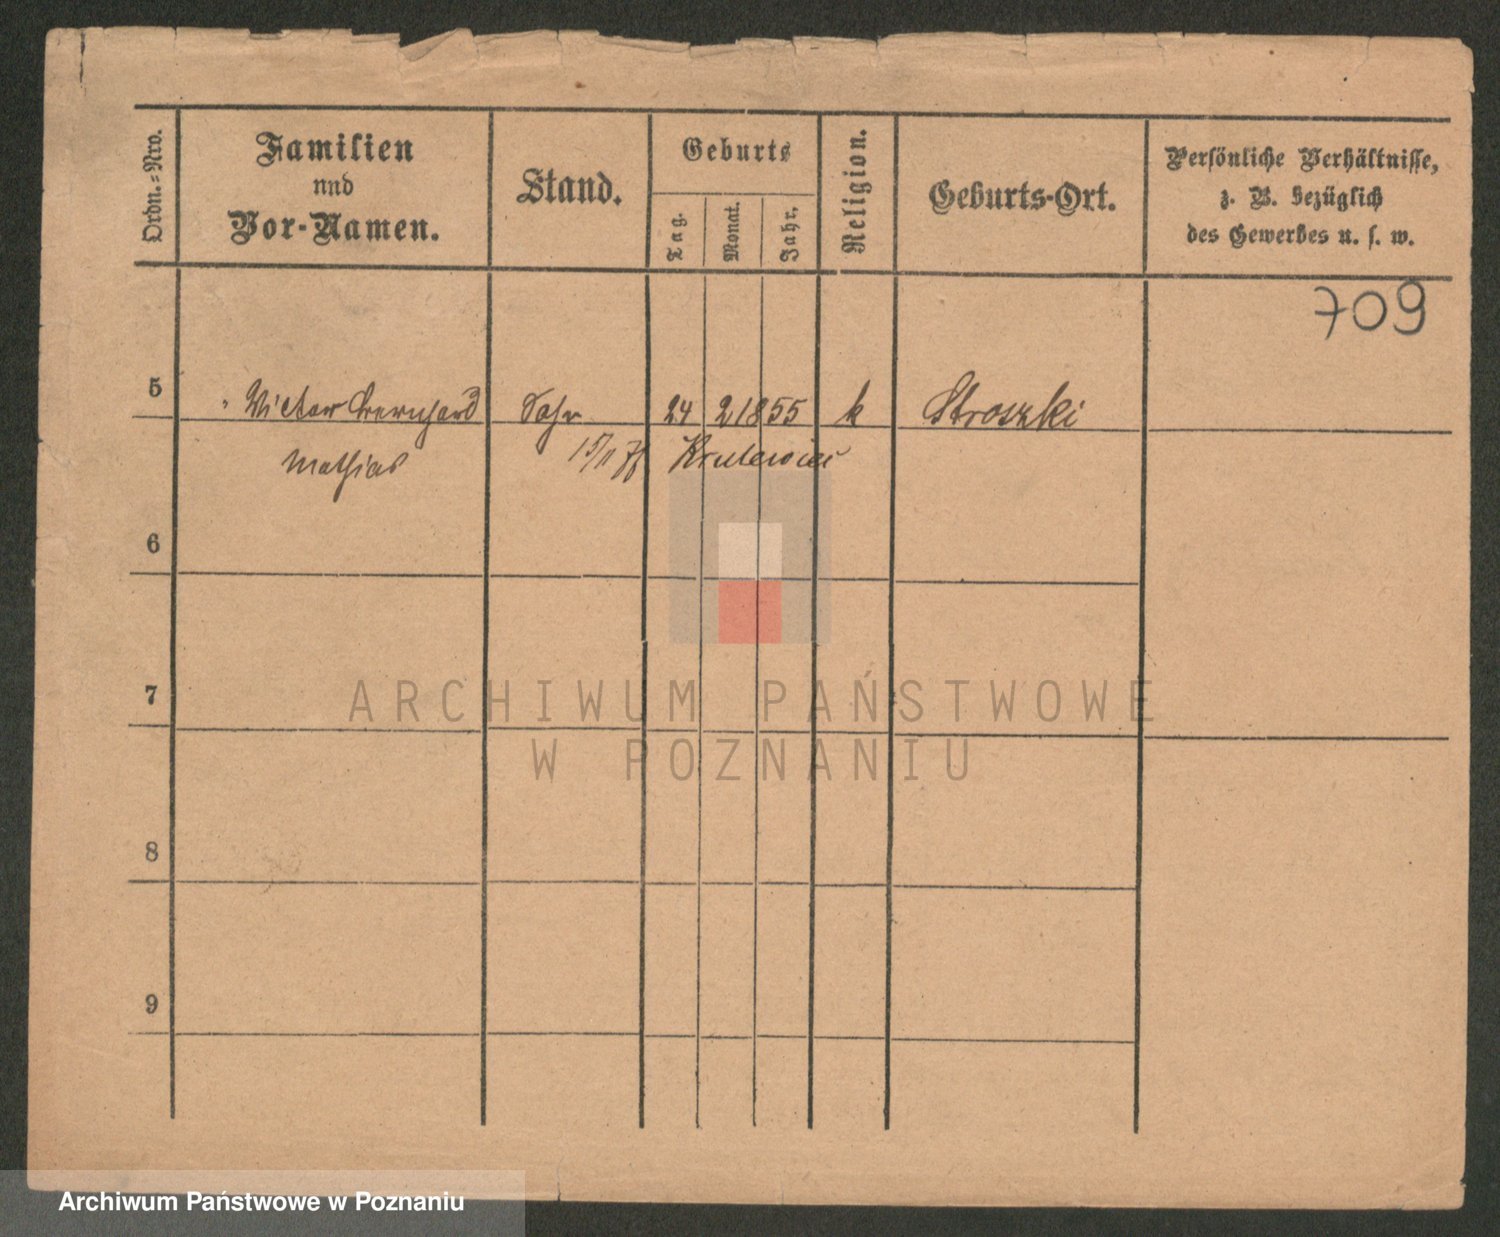 Ordn.-Nro.
Familien
nnd
Vor-Namen.
Stand.
Geburts
Tag.
Monat.
Jahr.
Religion.
Geburts-Ort.
Persönliche Verhältnisse,
z. B. bezüglich
des Gewerbes u. s. w.
709
5 " Victor Bernhard Sohn 24 2 1855 k Stroszki
Mathias
6
7
8
9
ARCHIWUM PAŃSTWOWE
W POZNANIU
Archiwum Państwowe w Poznaniu